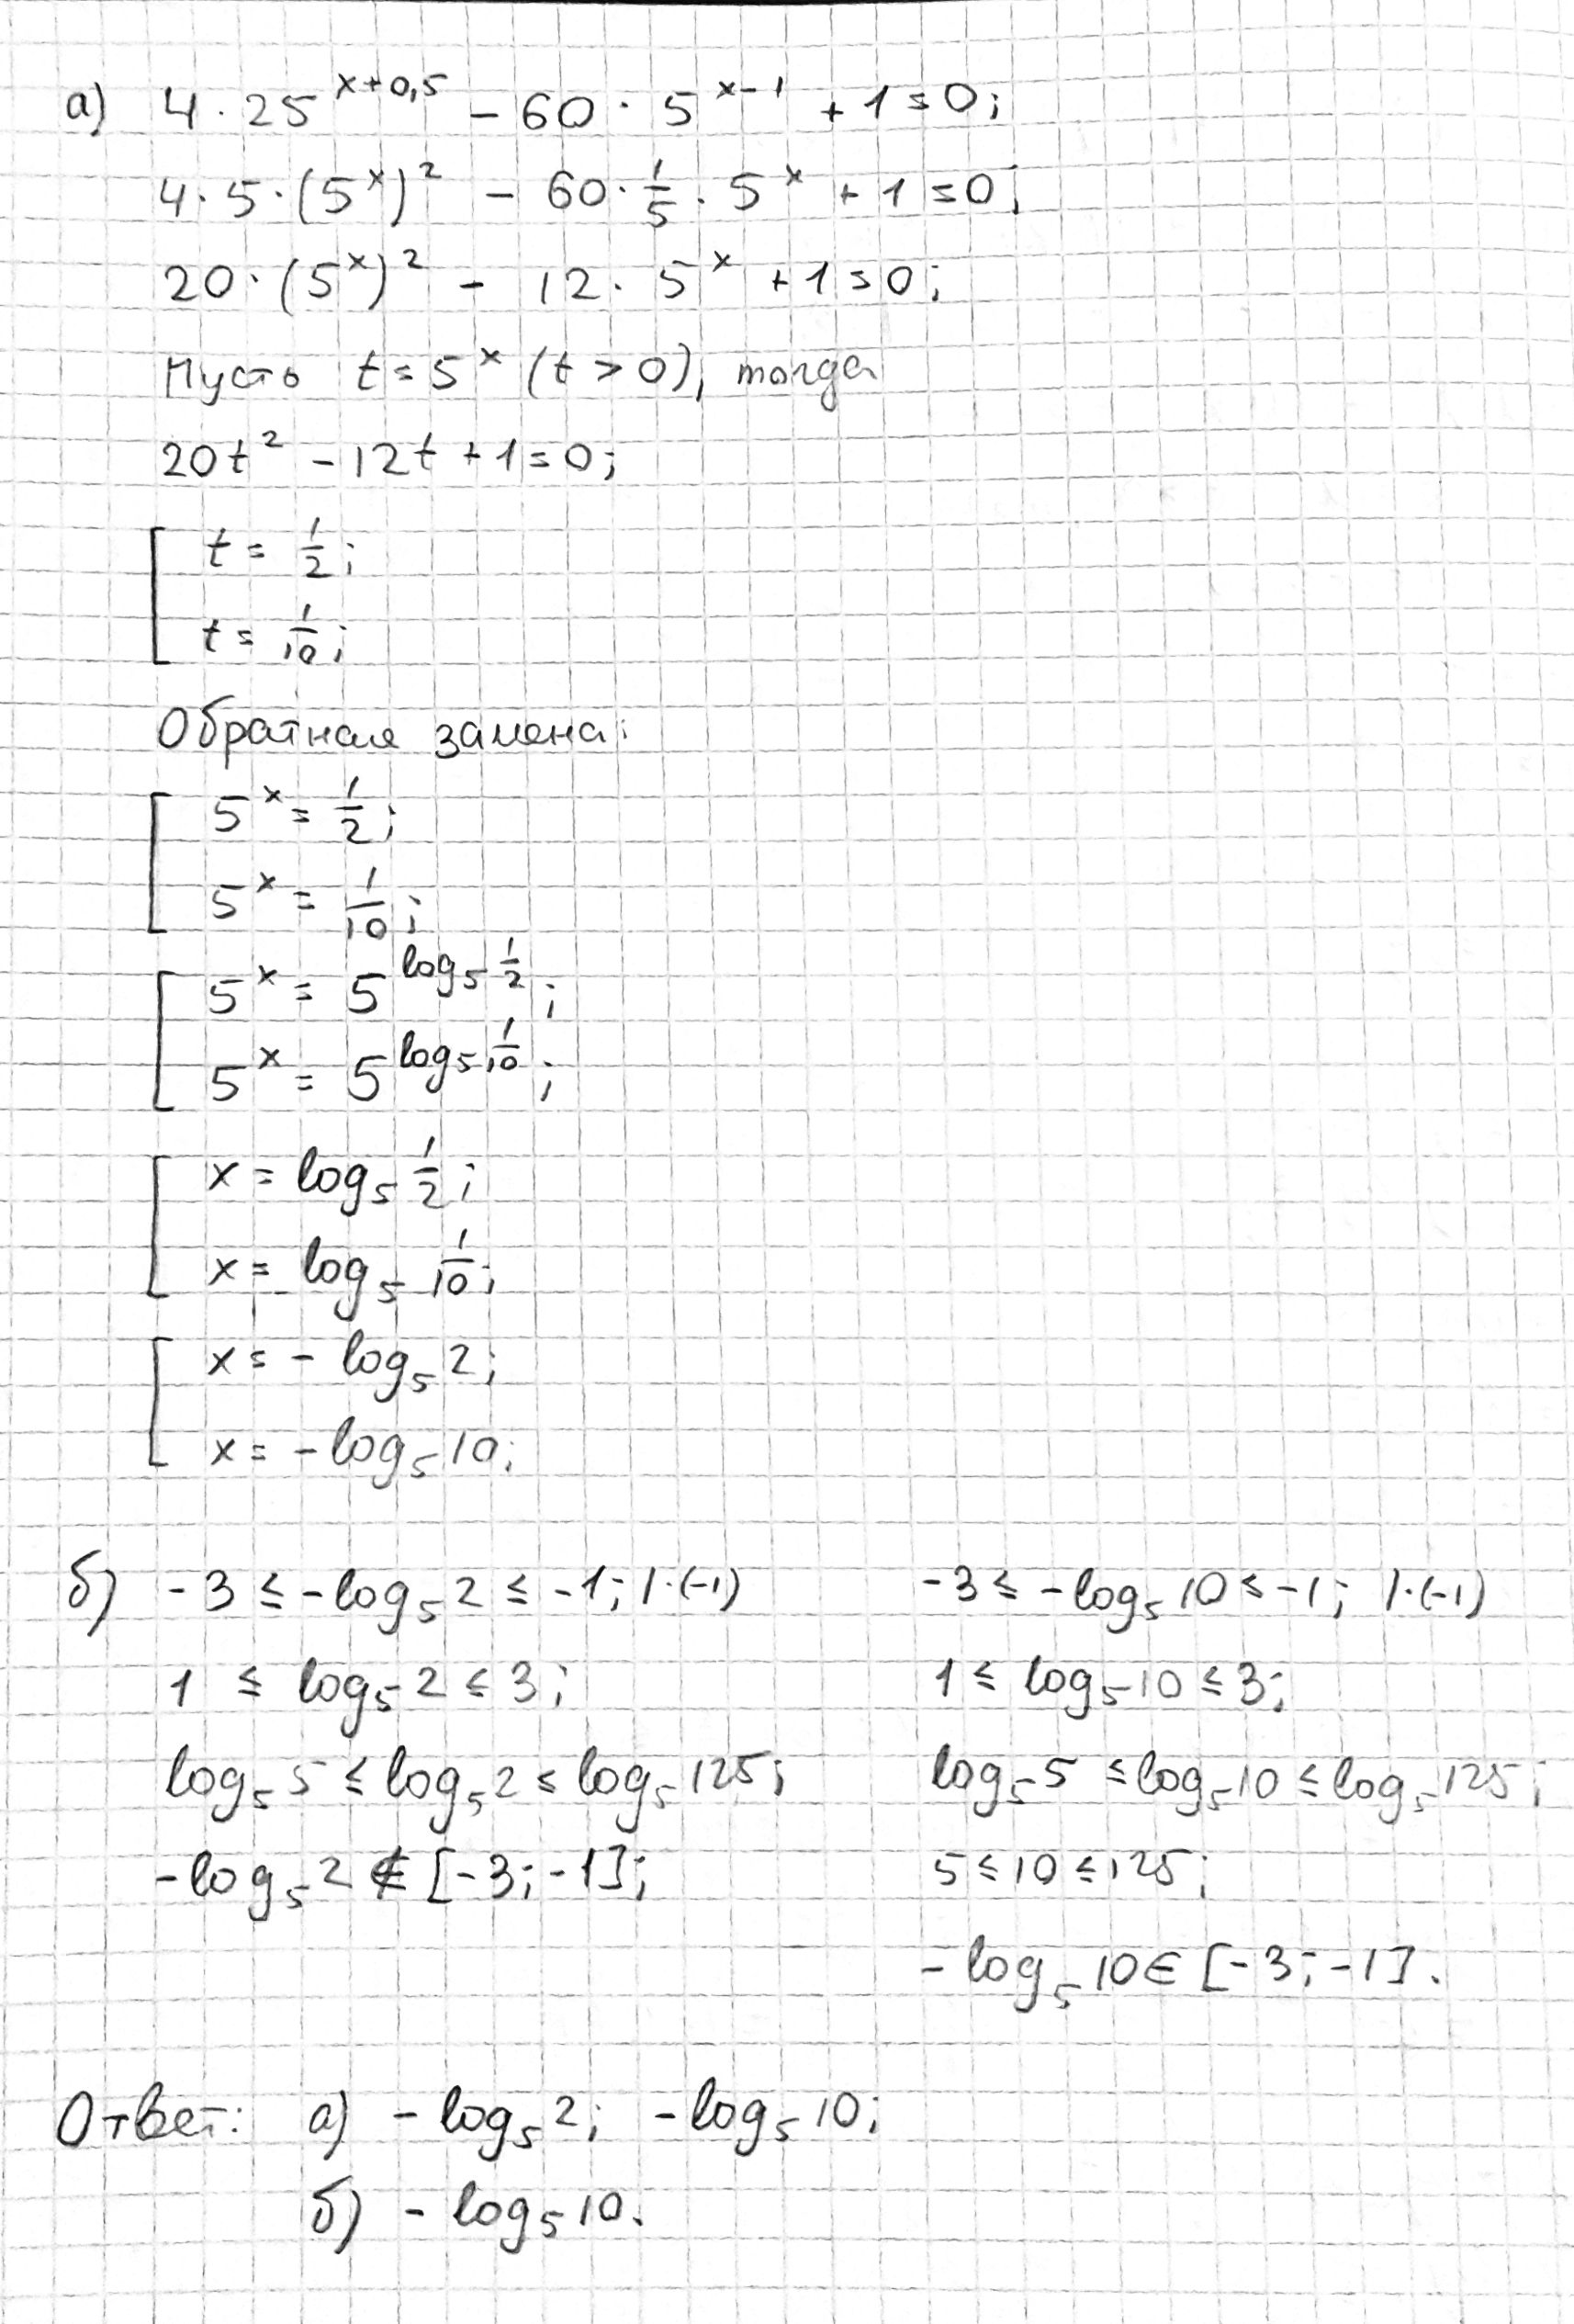 а) 4 · 25^(x+0,5) − 60 · 5^(x−1) + 1 = 0;
4 · 5 · (5^x)^2 − 60 · 1/5 · 5^x + 1 = 0;
20 · (5^x)^2 − 12 · 5^x + 1 = 0;
Пусть t = 5^x (t > 0), тогда
20t^2 − 12t + 1 = 0;
[ t = 1/2;
t = 1/10;
Обратная замена:
[ 5^x = 1/2;
5^x = 1/10;
[ 5^x = 5^(log_5 1/2);
5^x = 5^(log_5 1/10);
[ x = log_5 1/2;
x = log_5 1/10;
[ x = − log_5 2;
x = − log_5 10;
б) −3 ≤ −log_5 2 ≤ −1; | · (−1)
1 ≤ log_5 2 ≤ 3;
log_5 5 ≤ log_5 2 ≤ log_5 125;
−log_5 2 ∉ [−3; −1];
−3 ≤ −log_5 10 ≤ −1; | · (−1)
1 ≤ log_5 10 ≤ 3;
log_5 5 ≤ log_5 10 ≤ log_5 125;
5 ≤ 10 ≤ 125;
− log_5 10 ∈ [−3; −1].
Ответ: а) − log_5 2; −log_5 10;
б) − log_5 10.